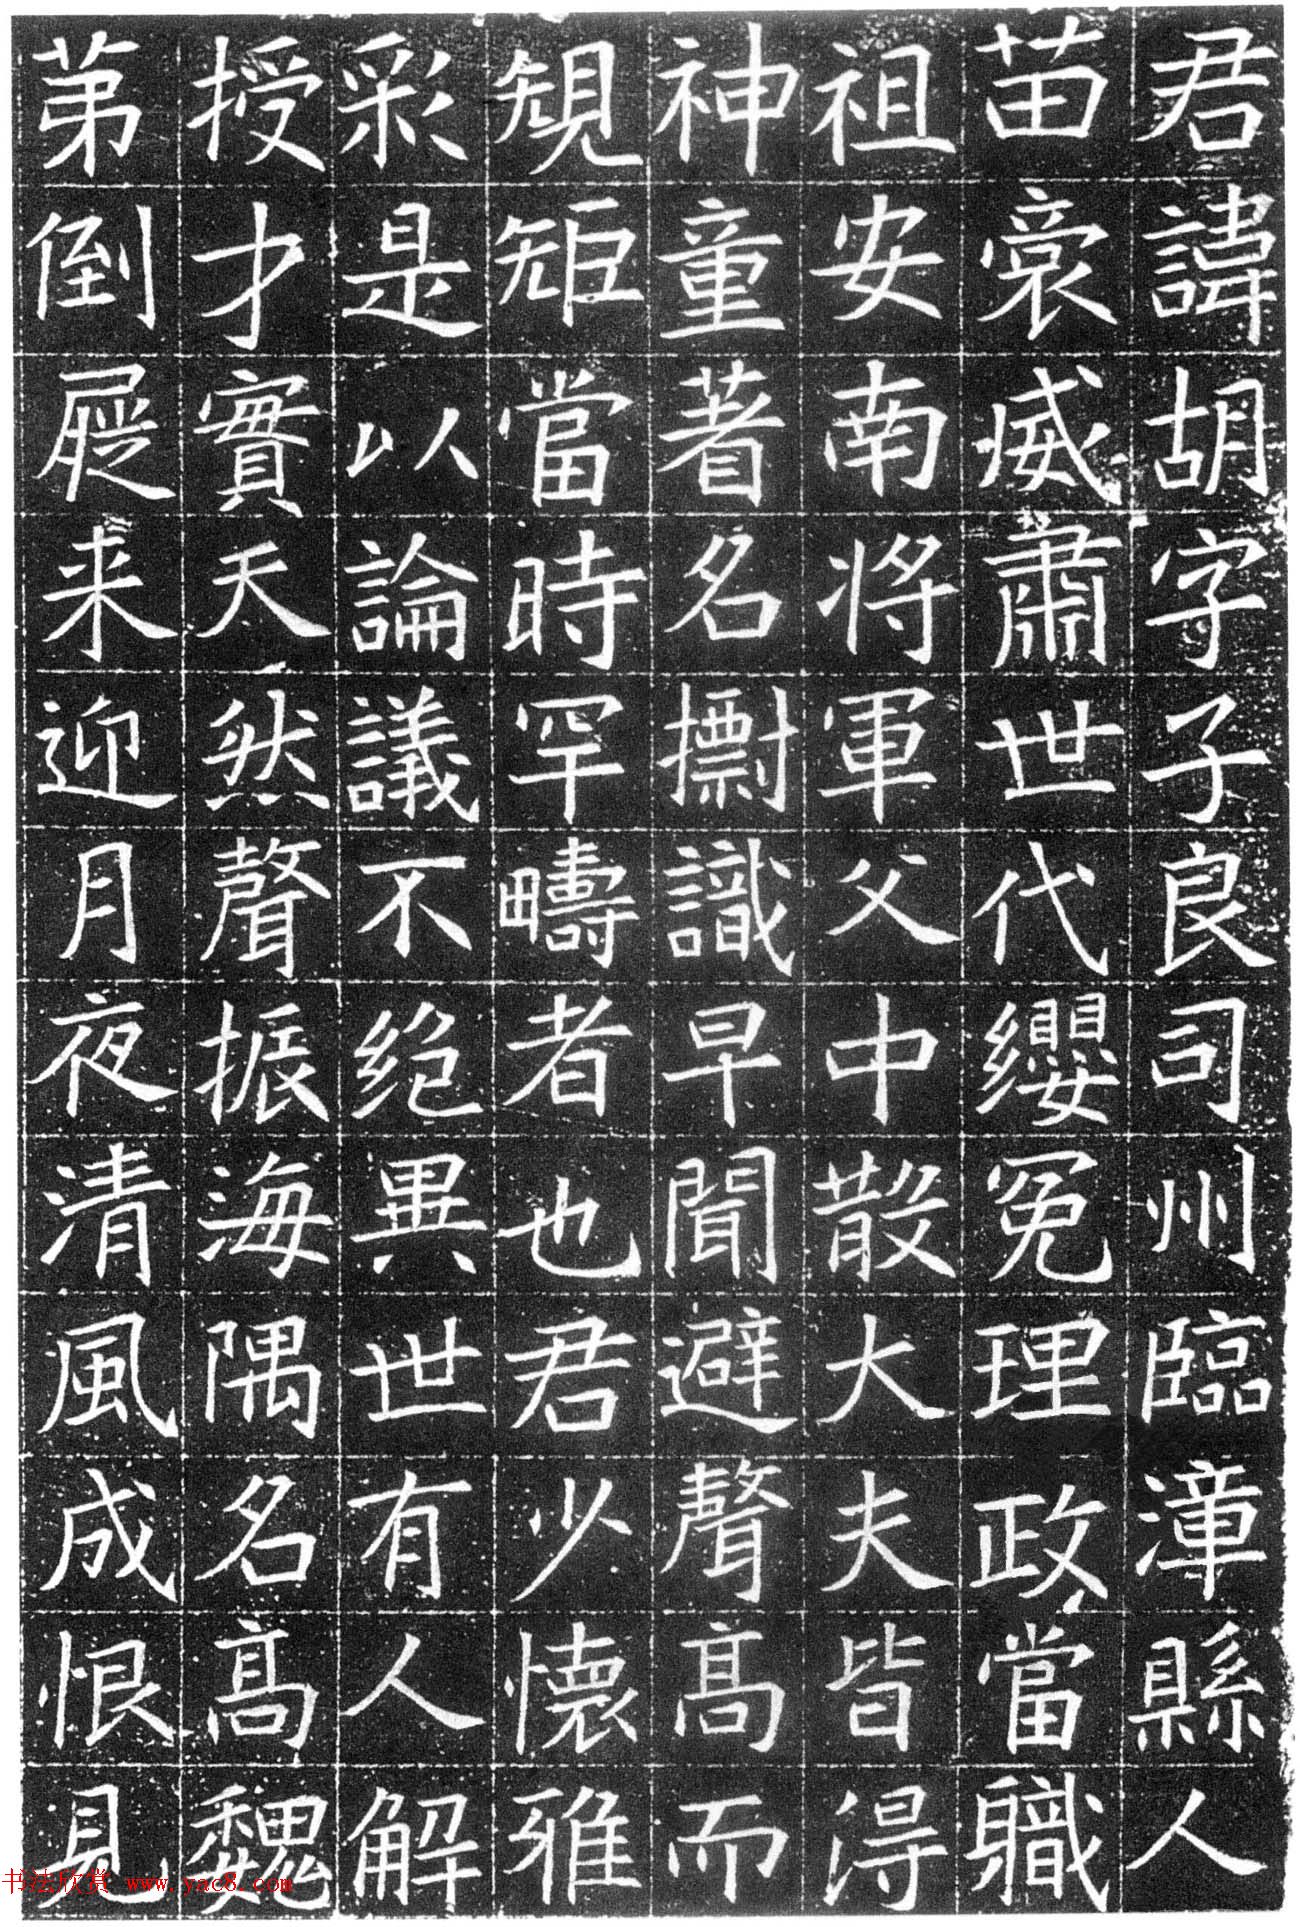 君諱胡字子良司州臨漳縣人
苗裔威肅世代纓冕理政當職
祖安南將軍父中散大夫皆淂
神童著名識早聞避聲髙而
䂓矩當時罕疇者也君少懷雅
彩是以論議不絶異世有人解
授才實天然聲振海隅名髙魏
苐倒屣来迎月夜清風成恨見
书法欣赏 www.yac8.com